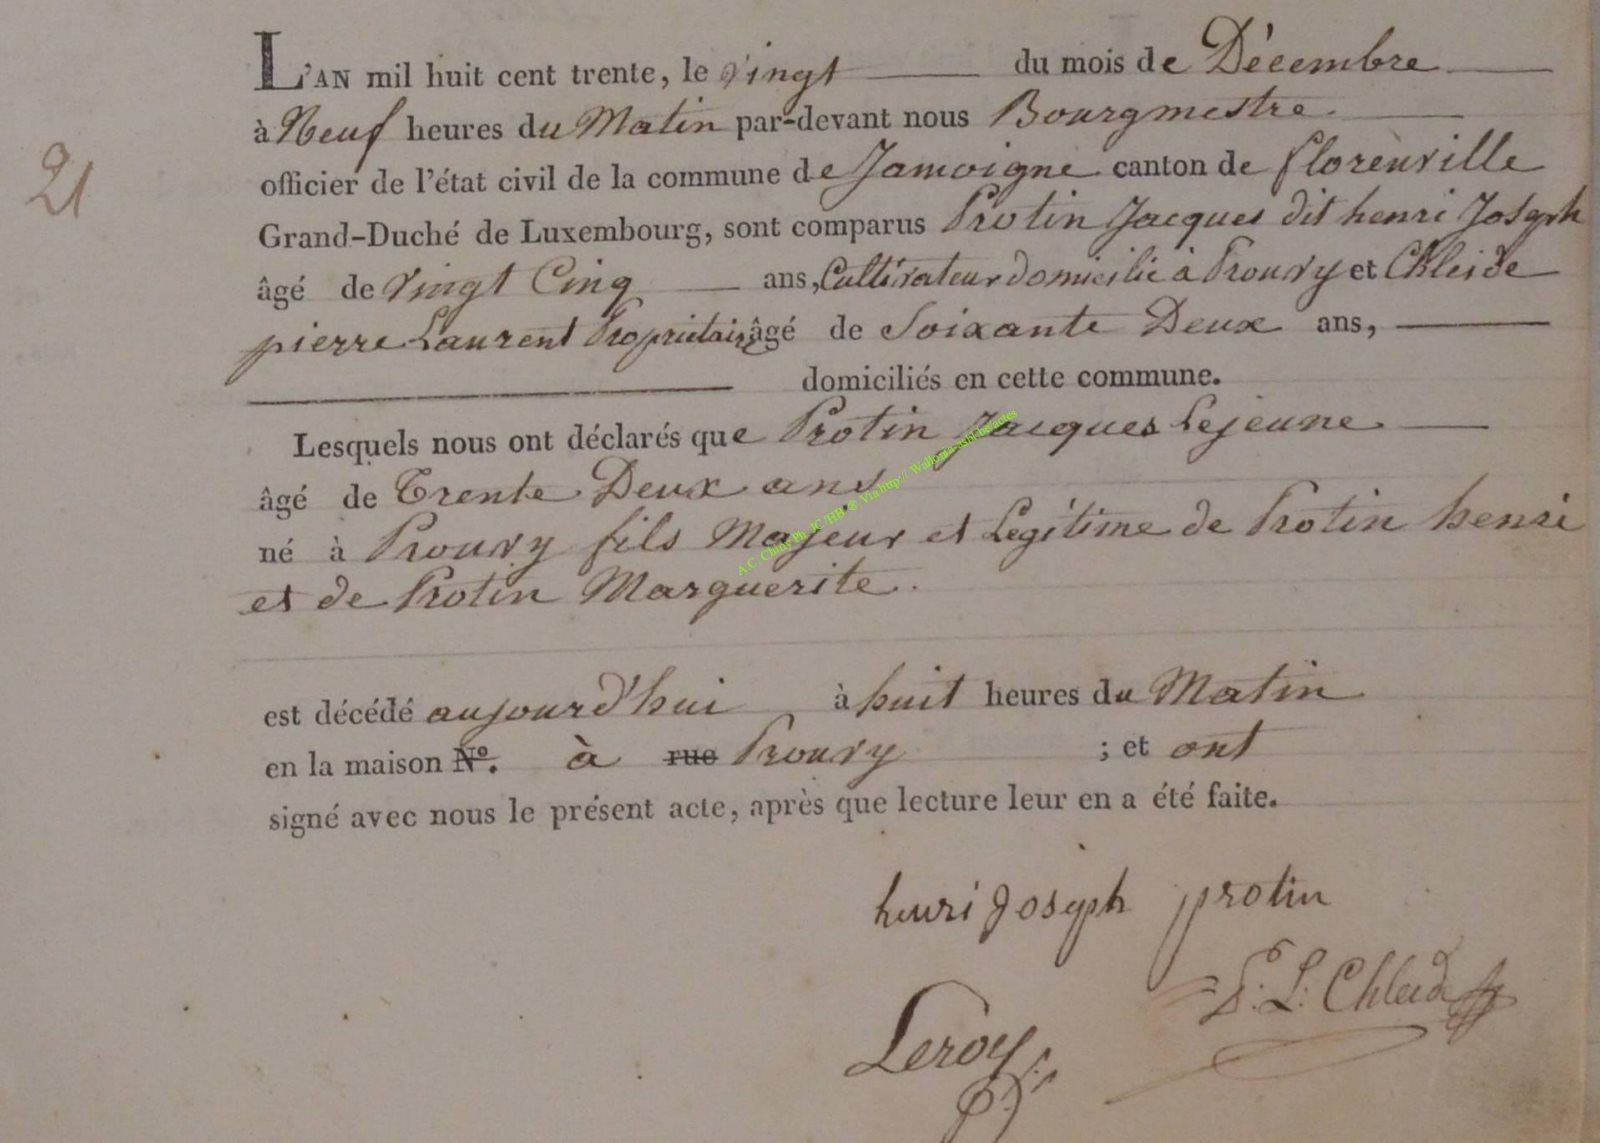 L'AN mil huit cent trente, le vingt du mois de Décembre
à Neuf heures du Matin par-devant nous Bourgmestre
officier de l'état civil de la commune de Jamoigne canton de florenville
21
Grand-Duché de Luxembourg, sont comparus Protin Jacques dit henri Joseph
âgé de vingt Cinq ans, Cultivateur domicilié à Prouvy et Chleide
pierre Laurent Propriétaire âgé de Soixante Deux ans,
domiciliés en cette commune.
Lesquels nous ont déclarés que Protin Jacques Lejeune
âgé de Trente Deux ans
né à Prouvy fils Majeur et Legitime de Protin henri
et de Protin Marguerite.
est décédé aujourd'hui à huit heures du Matin
en la maison N°. à rue Prouvy ; et ont
signé avec nous le présent acte, après que lecture leur en a été faite.
henri Joseph protin
P. L. Chleide
Leroy